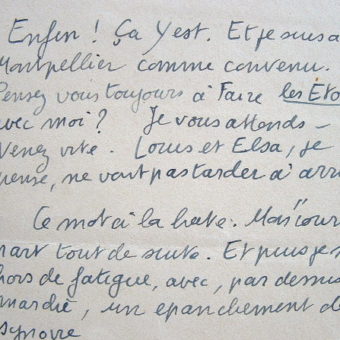 Enfin ! Ça y est. Et je suis à
Montpellier comme convenu.
Pensez vous toujours à Faire les Eto
avec moi ? Je vous attends –
Venez vite. Louis et Elsa, je
pense, ne vont pas tarder à arri
Ce mot à la hate. Mon cour
part tout de suite. Et puis je s
hors de fatigue, avec, par dessus
marché, un epanchement de
synovie